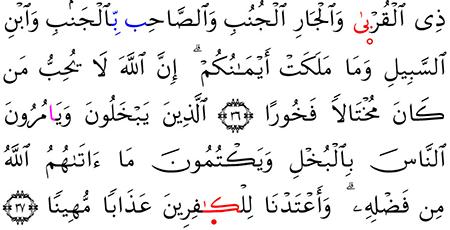 ذِى اِ۬لْقُرْبٜىٰ وَالْجَارِ اِ۬لْجُنُبِ وَالصَّاحِب بِّالْجَنۢبِ وَابْنِ
اِ۬لسَّبِيلِ وَمَا مَلَكَتْ أَيْمَٰنُكُمْۥٓ ۗ إِنَّ اَ۬للَّهَ لَا يُحِبُّ مَن
كَانَ مُخْتَالاً فَخُورًا ٣٦ اَ۬لَّذِينَ يَبْخَلُونَ وَيَامُرُونَ
اَ۬لنَّاسَ بِالْبُخْلِ وَيَكْتُمُونَ مَا ءَاتَىٰهُمُ اُ۬للَّهُ
مِن فَضْلِهِۦ ۗ وَأَعْتَدْنَا لِلْكٰٜفِرِينَ عَذَابًا مُّهِينًا ٣٧